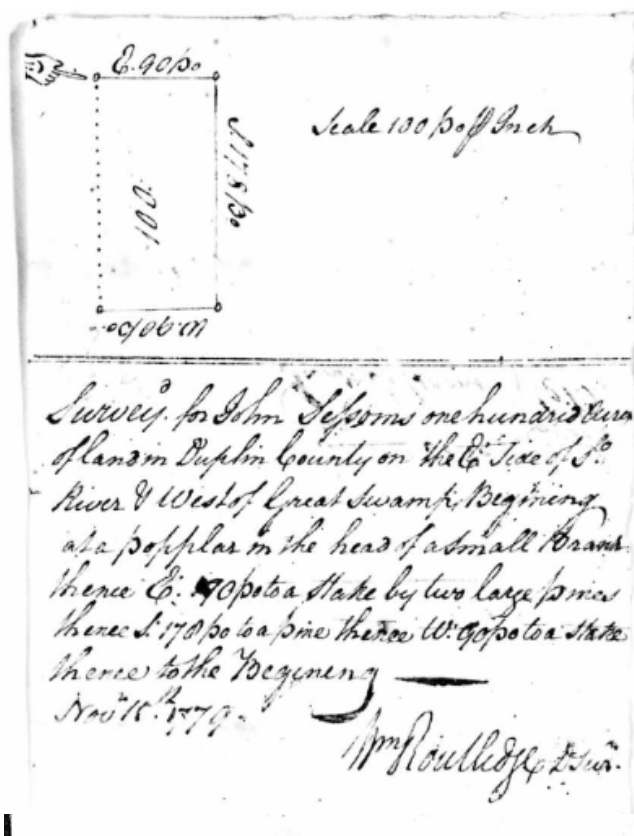 E. 90 po
Scale 100 po ⅌ Inch
S. 178 po
100
W. 90 po.
Survey.d for John Sessoms one hundred Acres
of land in Duplin County on the E.t Side of S.o
River & West of Great Swamp, Begining
at a popplar in the head of a small Branch
thence E. 90 po to a Stake by two large pines
thence S. 178 po to a pine thence W. 90 po to a stake
thence to the Begining
Nov.r 15.th 1779.
Wm Routledge D. Sur.r